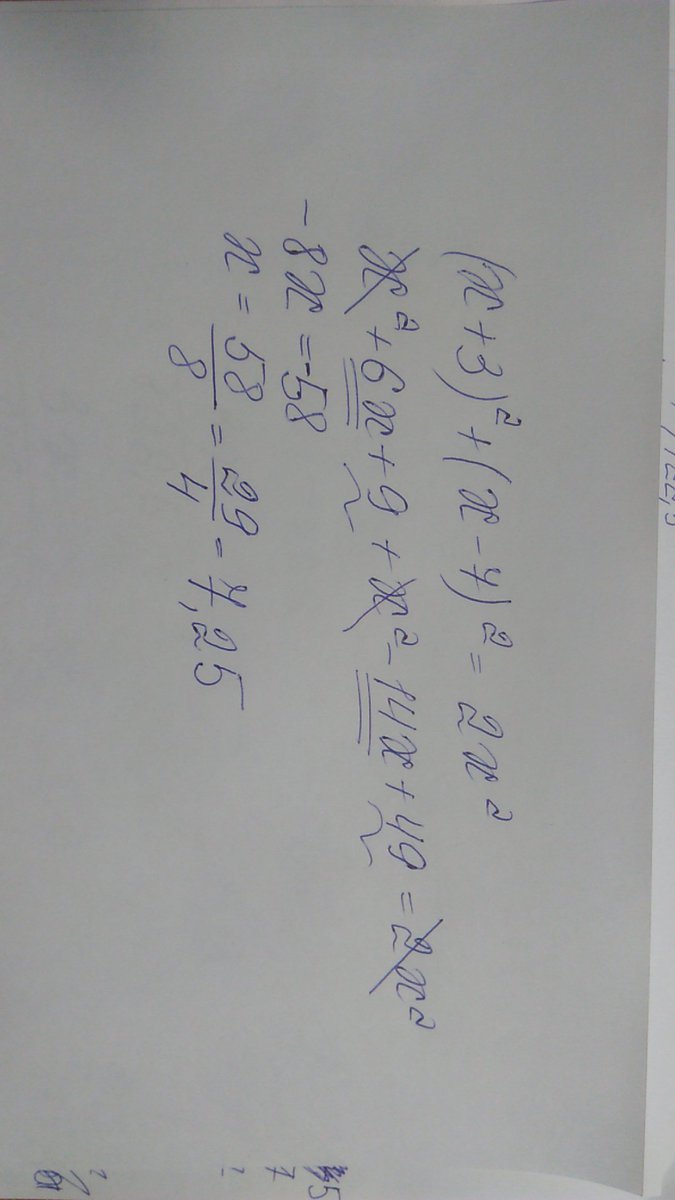 (x+3)² + (x-7)² = 2x²
x² + 6x + 9 + x² - 14x + 49 = 2x²
-8x = -58
x = 58/8 = 29/4 = 7,25